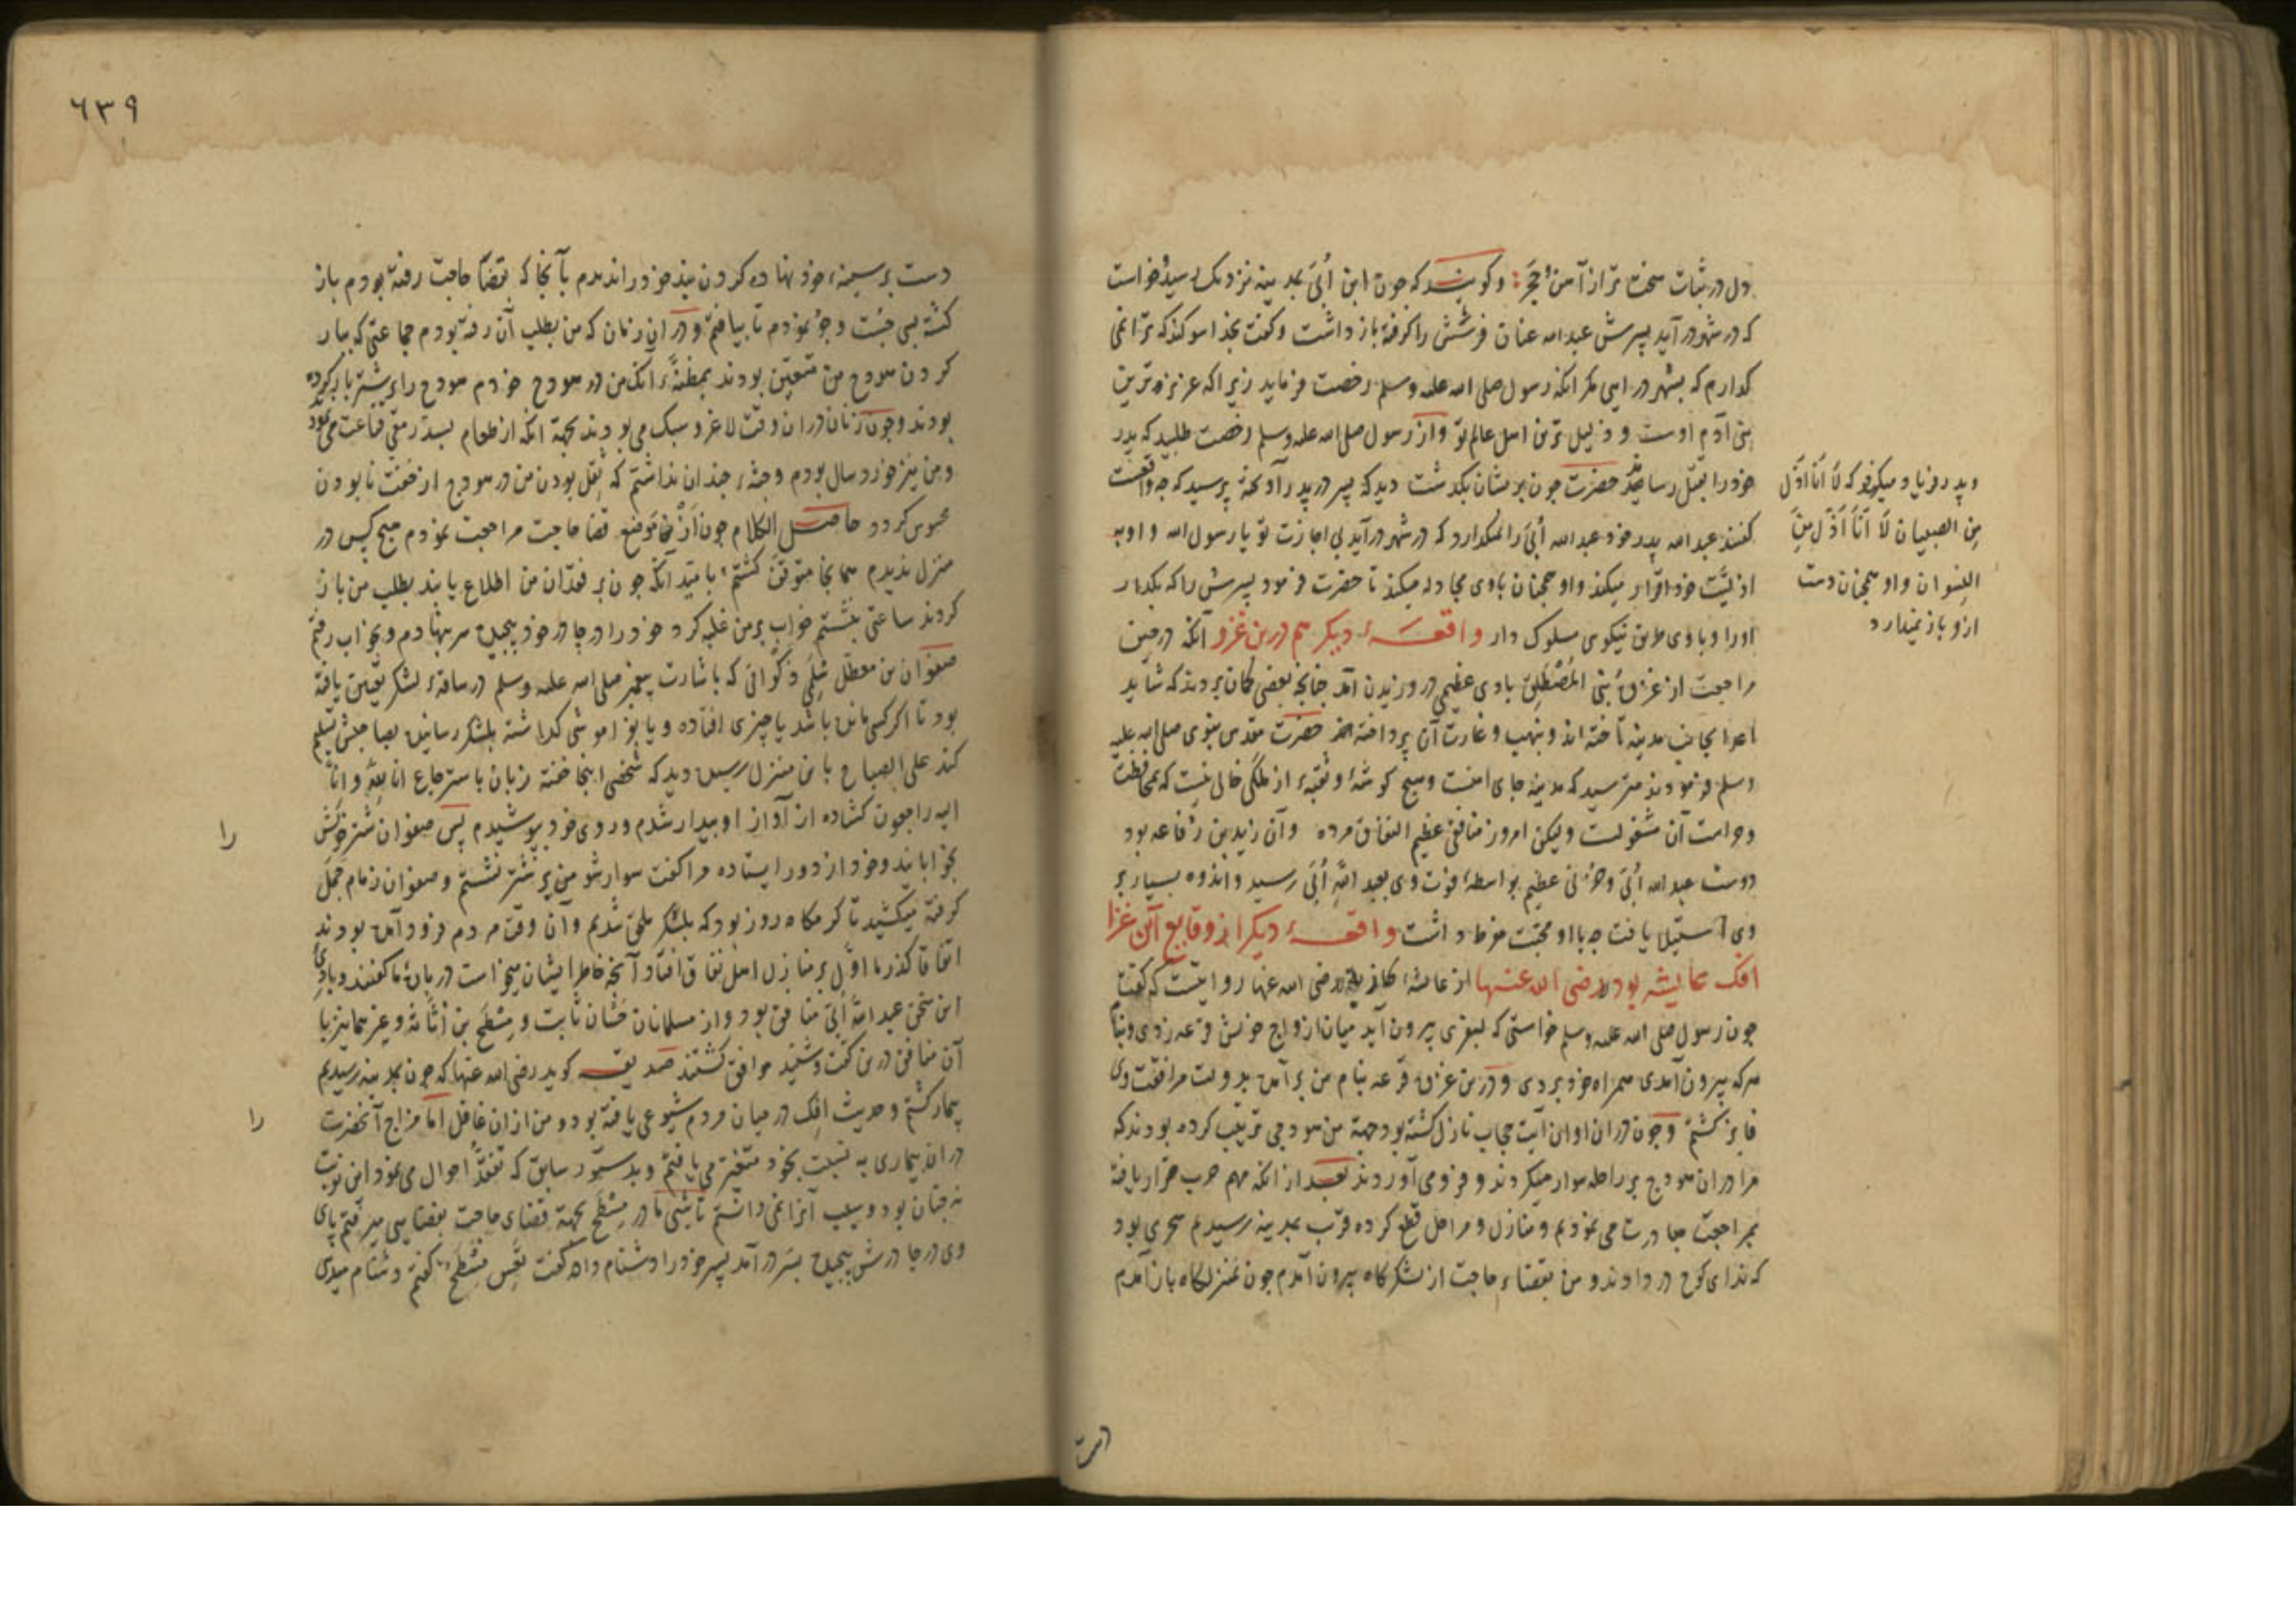 دل در ثبات سخت تر از آهن و حجر وکویند که جون ابن أبَی بمدینه نزدیک رسید خواست
که در شهر در آید پسرش عبدالله عنان فرسش را کرفته باز داشت و کفت بخدا سوکند که ترا نمی
کذارم که بشهر در ایی مکر انکه رسول صلی الله علیه وسلم رخصت فرماید زیرا که عزیزترین
بنی آدم اوست و ذلیل ترین اهل عالم تو و از رسول صلی الله علیه وسلم رخصت طلبید که پدر
خود را بقتل رساند حضرت جون بریشان بکذشت دید که پسر در پدر آویخته پرسید که جه واقعست
کفتند عبدالله پدر خود عبدالله أبَی را نمیکذارد که در شهر در آید بی اجازت تو یا رسول الله و او به
اذلیّت خود اقرار میکند و او همجنان با وی مجادله میکند تا حضرت فرمود پسرش را که بکذار
او را و با وی طریق نیکوی سلوک دار واقعهٔ دیکر هم درین غزو آنکه در حین
مراجعت از غزوهٔ بنی المُصْطَلِق بادی عظیم در وزیدن آمد جنانجه بعضی کمان بردند که شاید
اعدا بجانب مدینه تاخته اند و بنهب و غارت آن پرداخته اند حضرت مقدس نبوی صلی الله علیه
وسلم فرمودند مترسید که مدینه جای امنست و هیچ کوشهٔ و نقبهٔ از ملکی خالی نیست که بمحافظت
و حراست آن مشغولست ولیکن امروز منافقی عظیم النفاق مرده و آن زید بن رفاعه بود
دوست عبدالله أبَی و حُزنی عظیم بواسطهٔ فوت وی بعبدالله أبَی رسید و اندوه بسیار بر
وی استیلا یافت جه با او محبت مفرط داشت واقعهٔ دیکر از وقایع آن غزا
افک عایشه بود رضی الله عنها از عایشه رضی الله عنها روایتست که کفت
جون رسول صلی الله علیه وسلم خواستی که بسفری بیرون آید میان ازواج خویش قرعه زدی و بنام
هرکه بیرون آمدی همراه خود بردی و درین غزوه قرعه بنام من برآمده بدولت مرافقت وی
فایز کشتم و جون دران اوان آیت حجاب نازل کشته بود جهة من هودجی ترتیب کرده بودند که
مرا دران هودج بر راحله سوار میکردند و فرو می آوردند بعد از انکه مهم حرب قرار یافته
بمراجعت مبادرت می نمودیم و منازل و مراحل قطع کرده قرب بمدینه رسیدیم سحری بود
که ندای کوج در دادند و من بقضاء حاجت از لشکرکاه بیرون آمدم جون بمنزلکاه باز آمدم
وپدر فریاد میکرد که لَأَنَا اَذَلّ
مِنَ الصبیان لَأَنَا اَذَلّ مِنَ
النسوان و او همجنان دست
ازو باز نمیدارد
دست
٦٣٩
دست بر سینهٔ خود نهاده کردن بند خود را ندیدم بآنجا که قضاء حاجت رفته بودم باز
کشته بسی جُست و جُو نمودم تا بیافتم و دران زمان که من بطلب آن رفته بودم جماعتی که ببار
کردن هودج من متعین بودند بمظنهٔ آنک من در هودج خودم هودج را بر شتر بار کرده
بودند و جون زنان دران وقت لاغر و سبک می بودند بجهة انکه از طعام بسد رمقی قناعت می نمود
و من نیز خورد سال بودم و جثهٔ جندان نداشتم که ثقل بودن من در هودج از خفّت نا بودن
محسوس کردد حاصل الکلام جون از موضع قضا حاجت مراجعت نمودم هیچ کس در
منزل ندیدم همانجا متوقف کشتم بامید آنکه جون بر فقدان من اطلاع یابند بطلب من باز
کردند ساعتی بنشستم خواب بر من غلبه کرد خود را در جادر خود پیجیده سر بنهادم و بخواب رفتم
صفوان بن معطّل سُلَمی ذکوانی که باشارت پیغمبر صلی الله علیه وسلم در ساقهٔ لشکر تعیین یافته
بود تا اکر کسی مانده باشد یا جیزی افتاده و یا بفراموشی کذاشته بلشکر رسانیده بصاحبش تسلیم
کند علی الصباح بان منزل رسید دید که شخصی اینجا خفته زبان باسترجاع انا لِلّه و انا
الیه راجعون کشاده از آواز او بیدار شدم و روی خود بپوشیدم پس صفوان شتر خویش
را
بخوابانید و خود از دور ایستاده مرا کفت سوار شو من بر شتر نشستم و صفوان زمام جَمَل
کرفته میکشید تا کرمکاه روز بود که بلشکر ملحق شدیم و آن وقت مردم فرود آمده بودند
اتفاقا کذر ما اوّل بر منازل اهل نفاق افتاد و آنجه خاطر ایشان میخواست در بارهٔ ما کفتند و بادی
این سخن عبدالله أبَی منافق بود و از مسلمانان حَسّان ثابت و مِسْطَح بن اُثاثَه و غیر هما نیز با
آن منافق درین کفت و شنید موافق کشتند صدیقه کوید رضی الله عنها که جون بمدینه رسیدیم
بیمار کشتم و حدیث افک در میان مردم شیوعی یافته بود و من ازان غافل اما مزاج آنحضرت
را
دران بیماری به نسبت بخود متغیّر می یافتم و بدستور سابق که تفقّد احوال می نمود این نوبت
نه جنان بود و سبب آنرا نمی دانستم تا شبی با مادر مِسْطَح بجهة قضای حاجت بفضایی میرفتم پای
وی در جادرش پیجیده بسر در آمد پسر خود را دشنام داد کفت تَعِسَ مِسْطَحٌ کفتم دشنام میدی